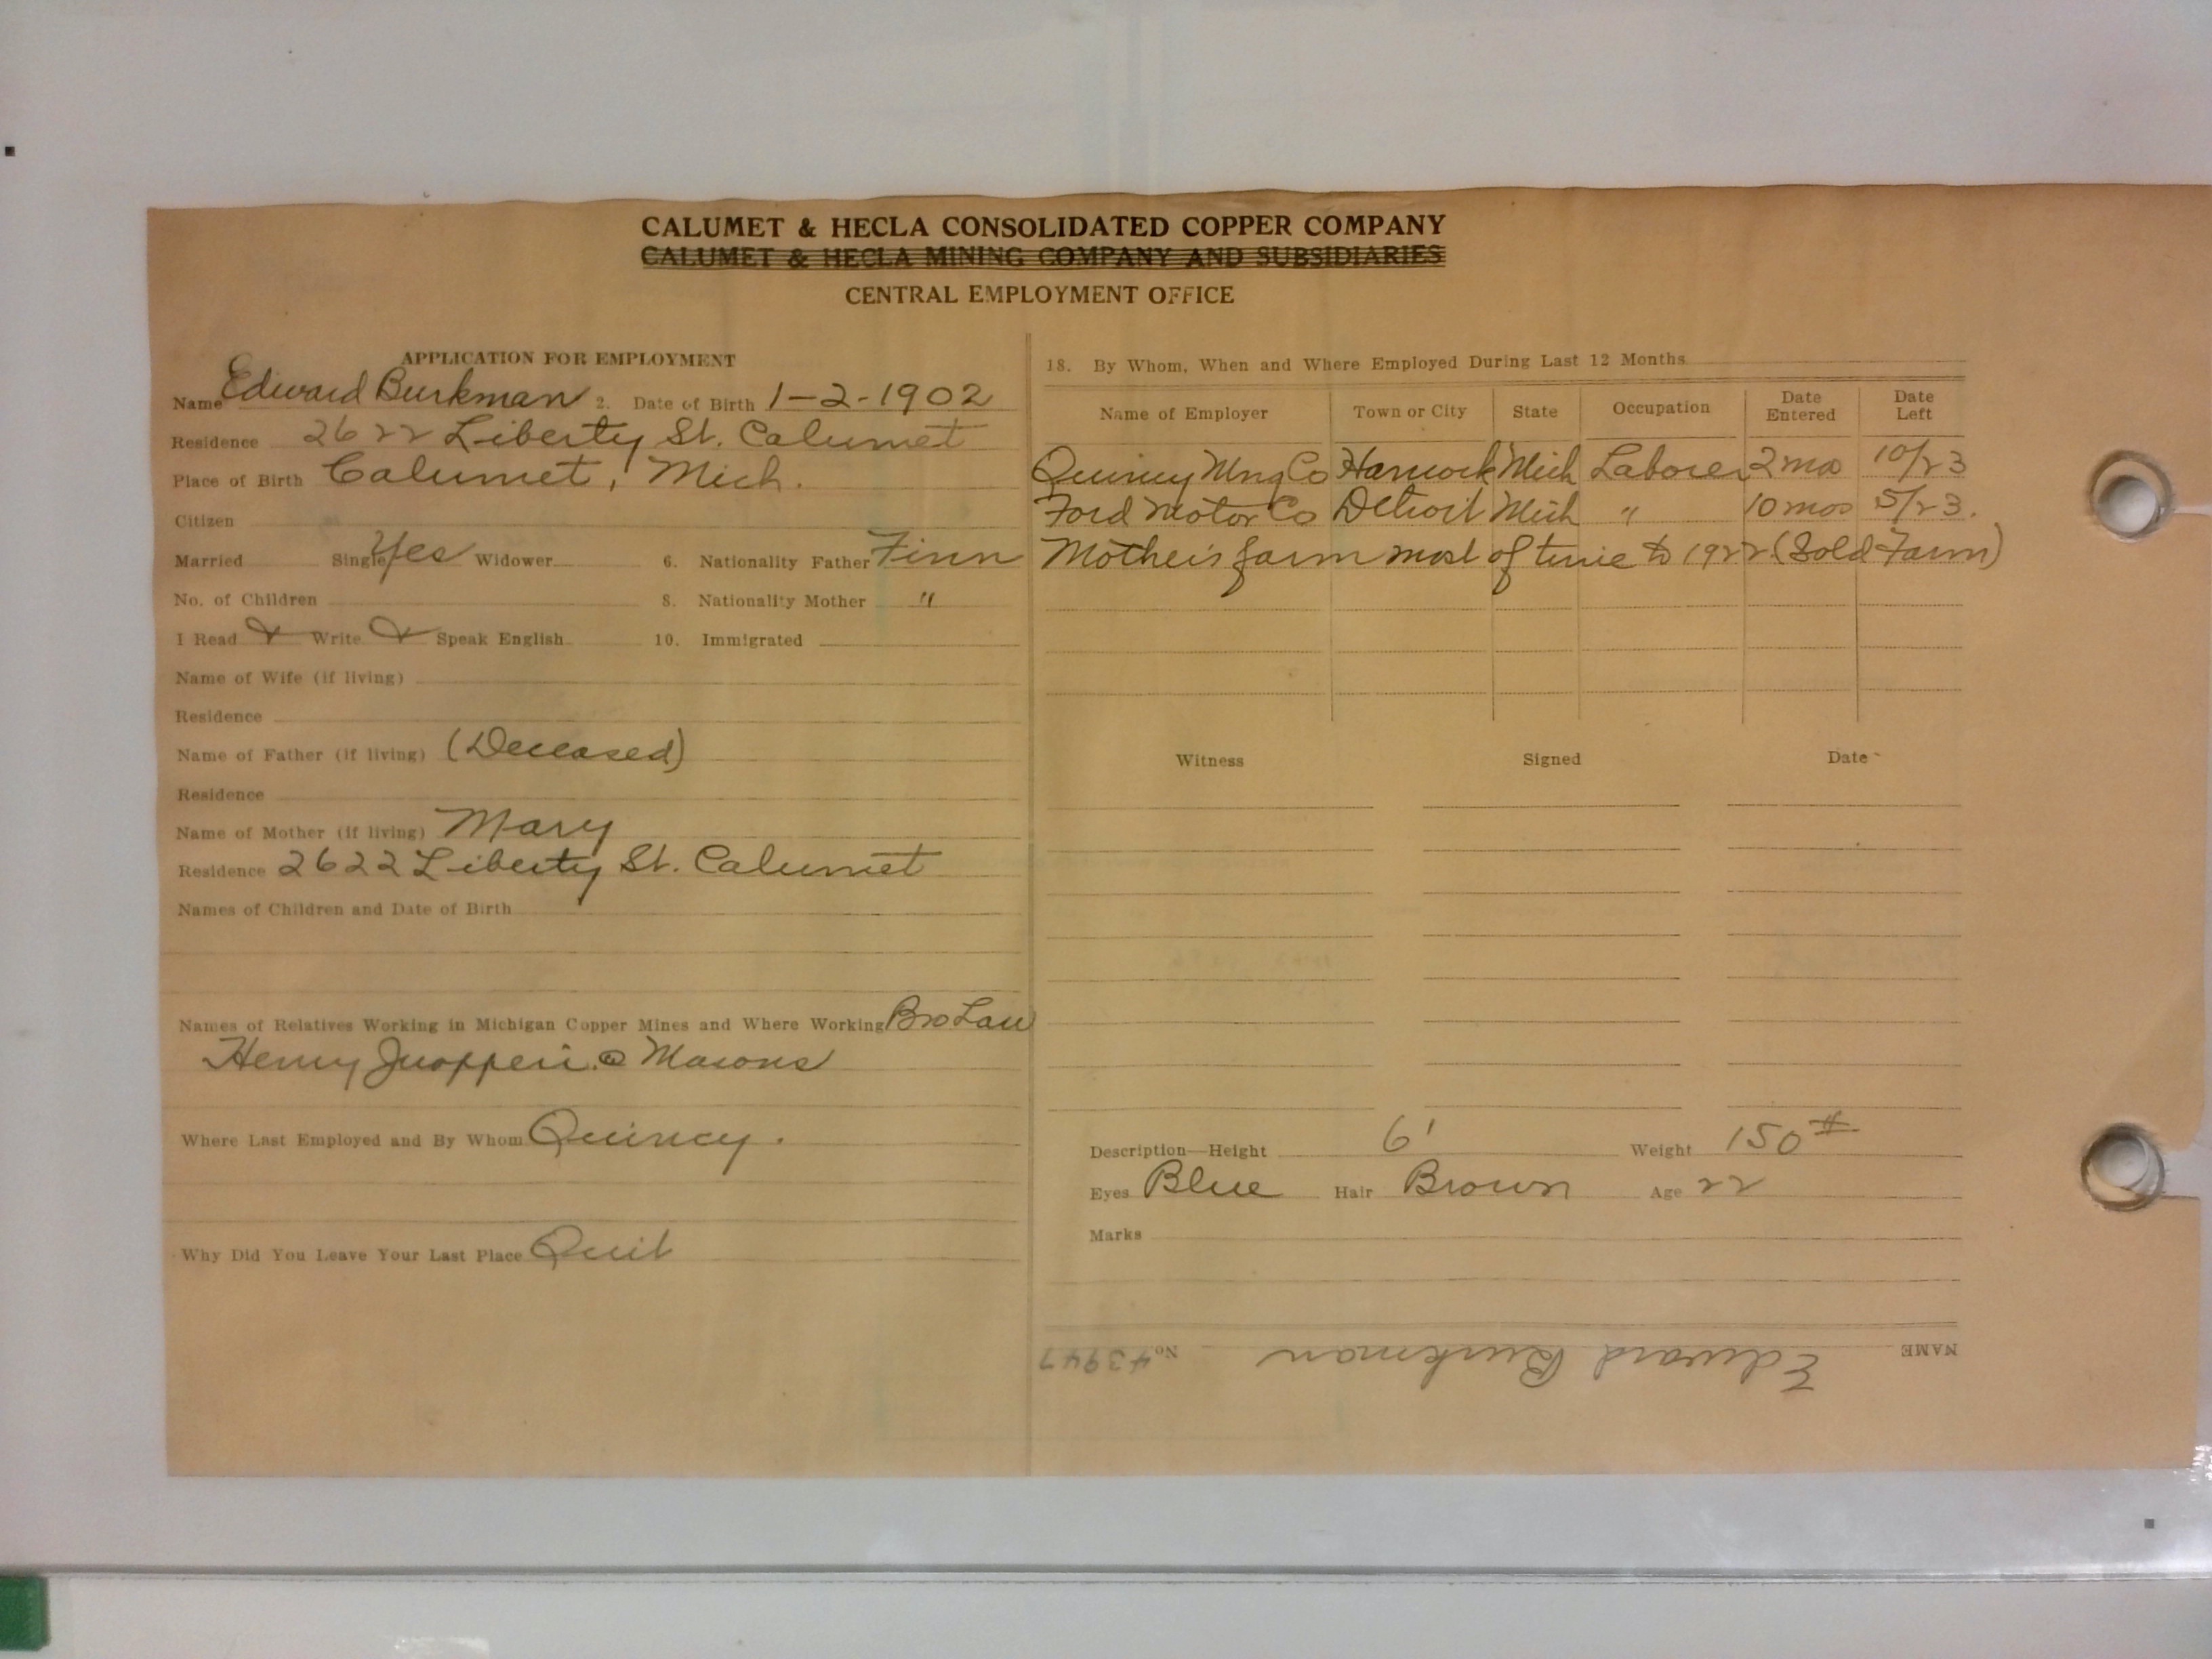 CALUMET & HECLA CONSOLIDATED COPPER COMPANY
CALUMET & HECLA MINING COMPANY AND SUBSIDIARIES
CENTRAL EMPLOYMENT OFFICE
APPLICATION FOR EMPLOYMENT
Name Edward Burkman 2. Date of Birth 1-2-1902
Residence 2622 Liberty St. Calumet
Place of Birth Calumet, Mich.
Citizen
Married Single Yes Widower 6. Nationality Father Finn
No. of Children 8. Nationality Mother "
I Read Write Speak English 10. Immigrated
Name of Wife (if living)
Residence
Name of Father (if living) (Deceased)
Residence
Name of Mother (if living) Mary
Residence 2622 Liberty St. Calumet
Names of Children and Date of Birth
Names of Relatives Working in Michigan Copper Mines and Where Working Bro Law
Henry @ Masons
Where Last Employed and By Whom Quincy.
Why Did You Leave Your Last Place Quit
18. By Whom, When and Where Employed During Last 12 Months
Name of Employer Town or City State Occupation Date Entered Date Left
Quincy Mng Co Hancock Mich Laborer 2 mo 10/23
Ford Motor Co Detroit Mich " 10 mos 5/23.
Mother's farm most of time to 1922 (Sold Farm)
Witness Signed Date
Description—Height 6' Weight 150#
Eyes Blue Hair Brown Age 22
Marks
NAME Edward Burkman No. 43947